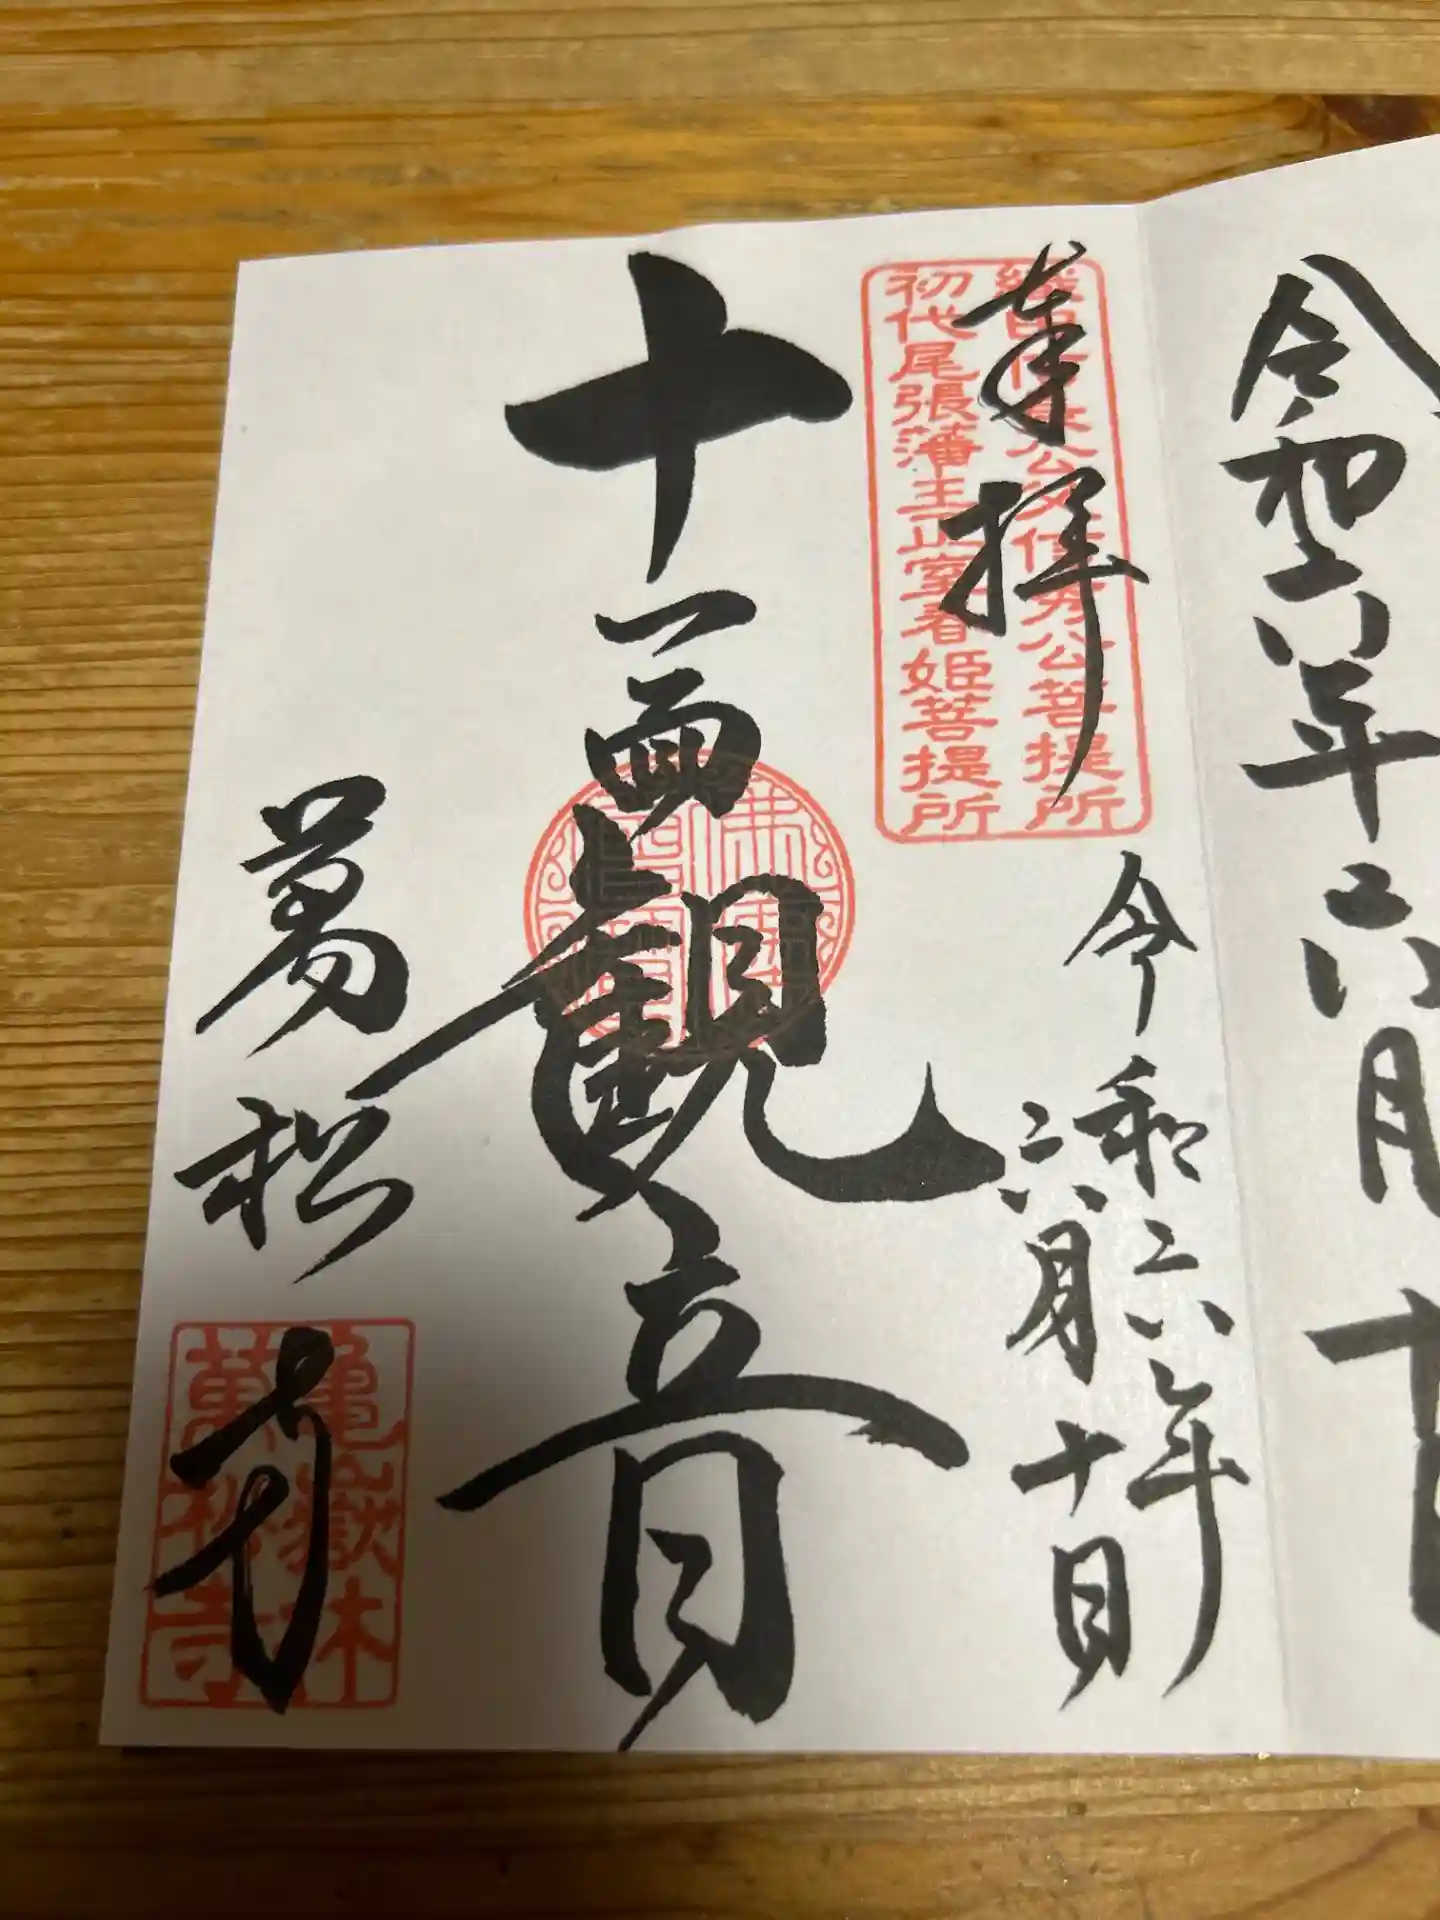 令和六年六月十
奉拝
織田信長公父信秀公菩提所
初代尾張藩主正室春姫菩提所
令和六年
六月十日
十一面観音
萬松寺
亀嶽林
萬松寺